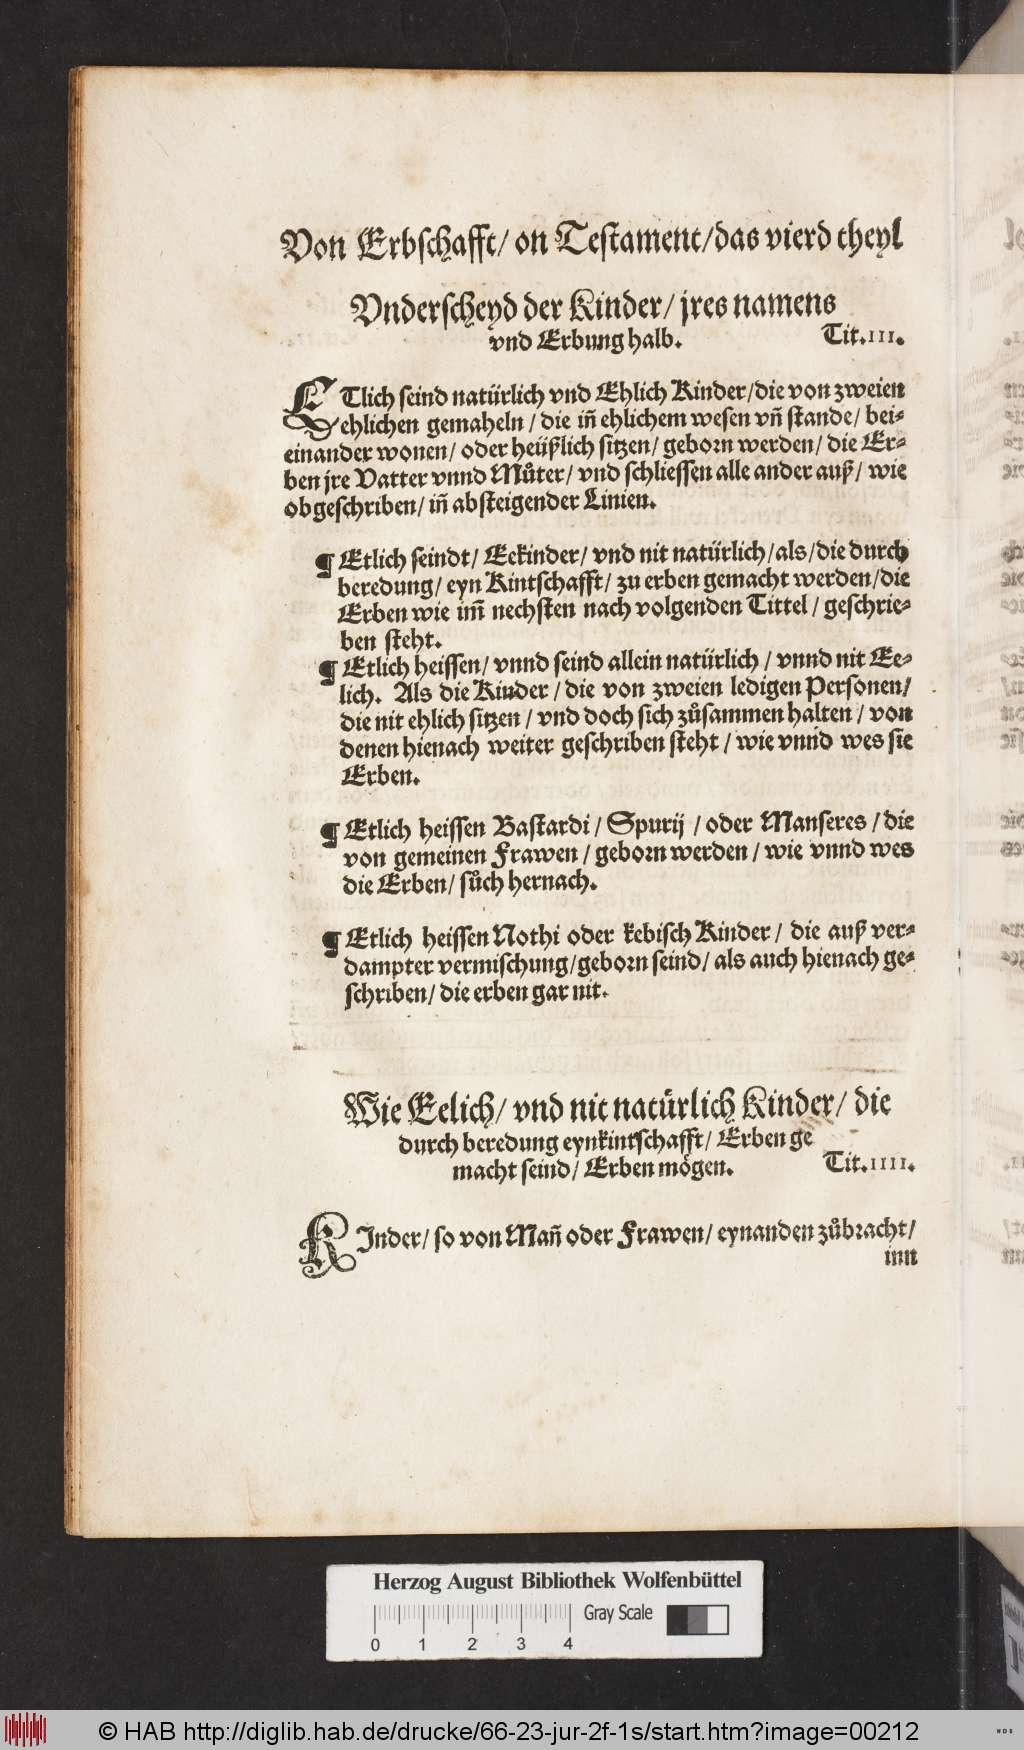 Von Erbschafft/ on Testament/ das vierd theyl
Vnderscheyd der Kinder/ jres namens
vnd Erbung halb. Tit.III.
ETlich seind natürlich vnd Ehlich Kinder/ die von zweien
ehlichen gemaheln / die iñ ehlichem wesen vñ stande/ bei⸗
einander wonen/ oder heüßlich sitzen/ geborn werden/ die Er⸗
ben jre Vatter vnnd Můter/ vnd schliessen alle ander auß/ wie
obgeschriben/ iñ absteigender Linien.
¶ Etlich seindt/ Eekinder/ vnd nit natürlich/ als/ die durch
beredung/ eyn Kintschafft/ zu erben gemacht werden/ die
Erben wie im̃ nechsten nach volgenden Tittel / geschrie⸗
ben steht.
¶ Etlich heissen/ vnnd seind allein natürlich / vnnd nit Ee⸗
lich. Als die Kinder / die von zweien ledigen Personen/
die nit ehlich sitzen / vnd doch sich zůsammen halten / von
denen hienach weiter geschriben steht / wie vnnd wes sie
Erben.
¶ Etlich heissen Bastardi / Spurij / oder Manseres / die
von gemeinen Frawen / geborn werden / wie vnnd wes
die Erben/ sůch hernach.
¶ Etlich heissen Nothi oder kebisch Kinder / die auß ver⸗
dampter vermischung/ geborn seind/ als auch hienach ge⸗
schriben/ die erben gar nit.
Wie Eelich/ vnd nit natürlich Kinder/ die
durch beredung eynkintschafft/ Erben ge
macht seind/ Erben mögen. Tit.IIII.
KInder/ so von Mañ oder Frawen/ eynanden zůbracht/
inn
Herzog August Bibliothek Wolfenbüttel
Gray Scale
0 1 2 3 4
© HAB http://diglib.hab.de/drucke/66-23-jur-2f-1s/start.htm?image=00212